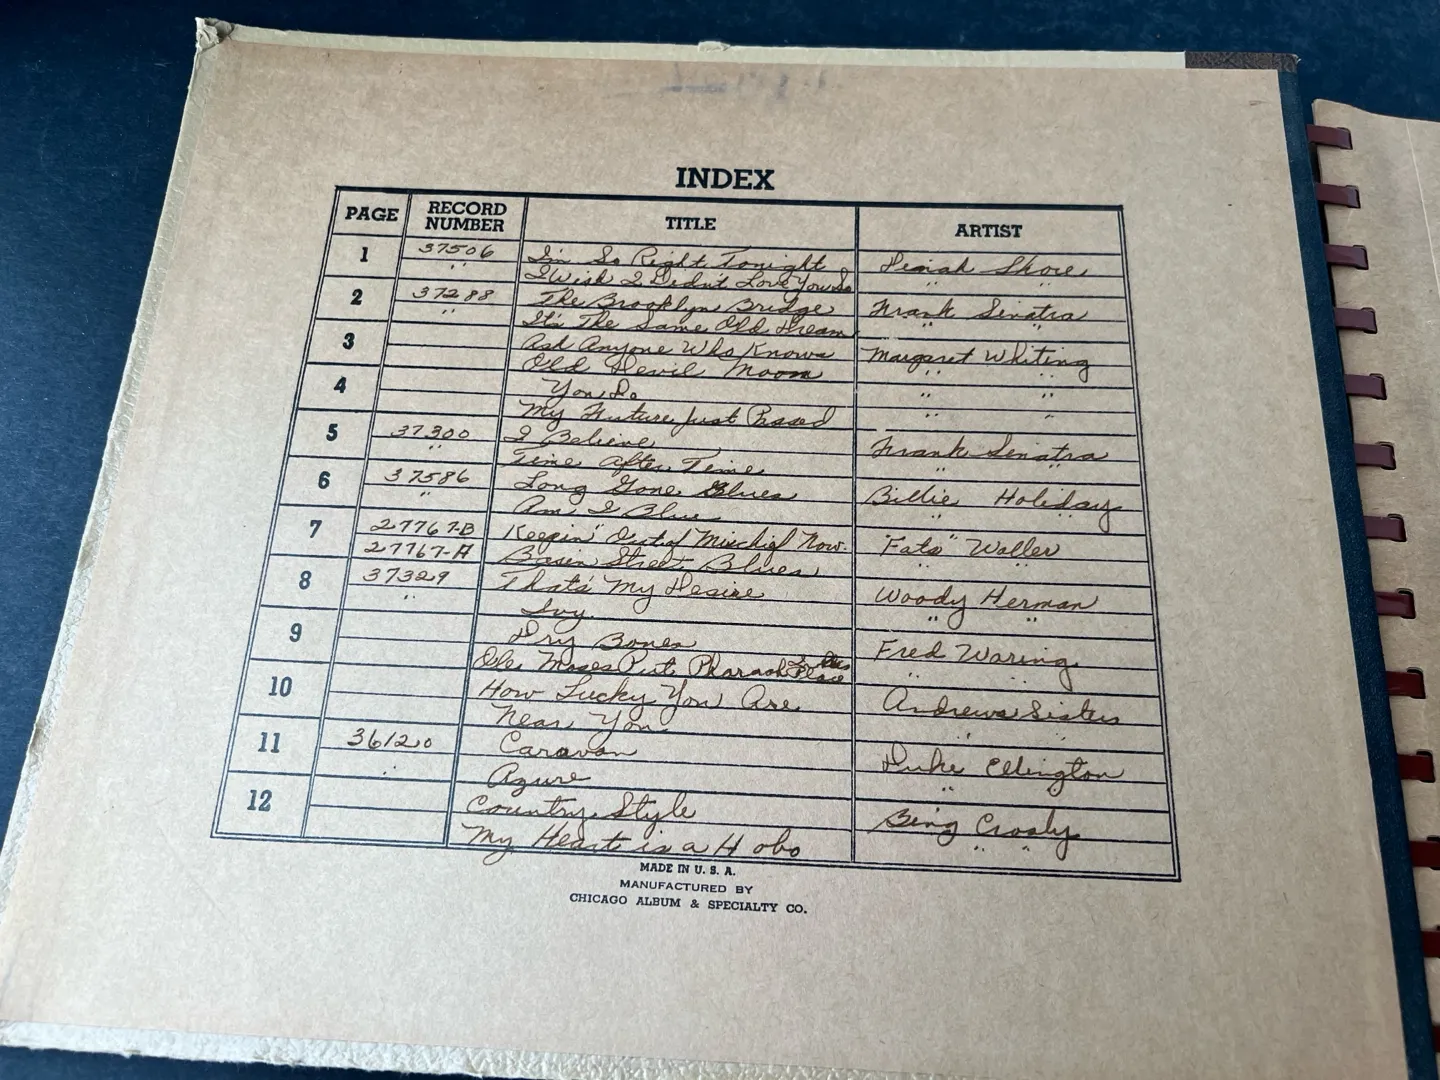 INDEX
PAGE RECORD NUMBER TITLE ARTIST
1 37506 I'm So Right Tonight Dinah Shore
" I Wish I Didn't Love You So " "
2 37288 The Brooklyn Bridge Frank Sinatra
" It's The Same Old Dream " "
3 Ask Anyone Who Knows Margaret Whiting
Old Devil Moon " "
4 You Do " "
My Future Just Passed " "
5 37300 I Believe Frank Sinatra
" Time After Time " "
6 37586 Long Gone Blues Billie Holiday
" Am I Blue " "
7 27767-B Keepin' Out of Mischief Now. "Fats" Waller
27767-A Basin Street Blues " "
8 37329 That's My Desire Woody Herman
" Ivy " "
9 Dry Bones Fred Waring
Ole Moses Put Pharaoh In His Place " "
10 How Lucky You Are Andrews Sisters
Near You " "
11 36120 Caravan Duke Ellington
" Azure "
12 Country Style Bing Crosby
My Heart is a Hobo " "
MADE IN U. S. A.
MANUFACTURED BY
CHICAGO ALBUM & SPECIALTY CO.